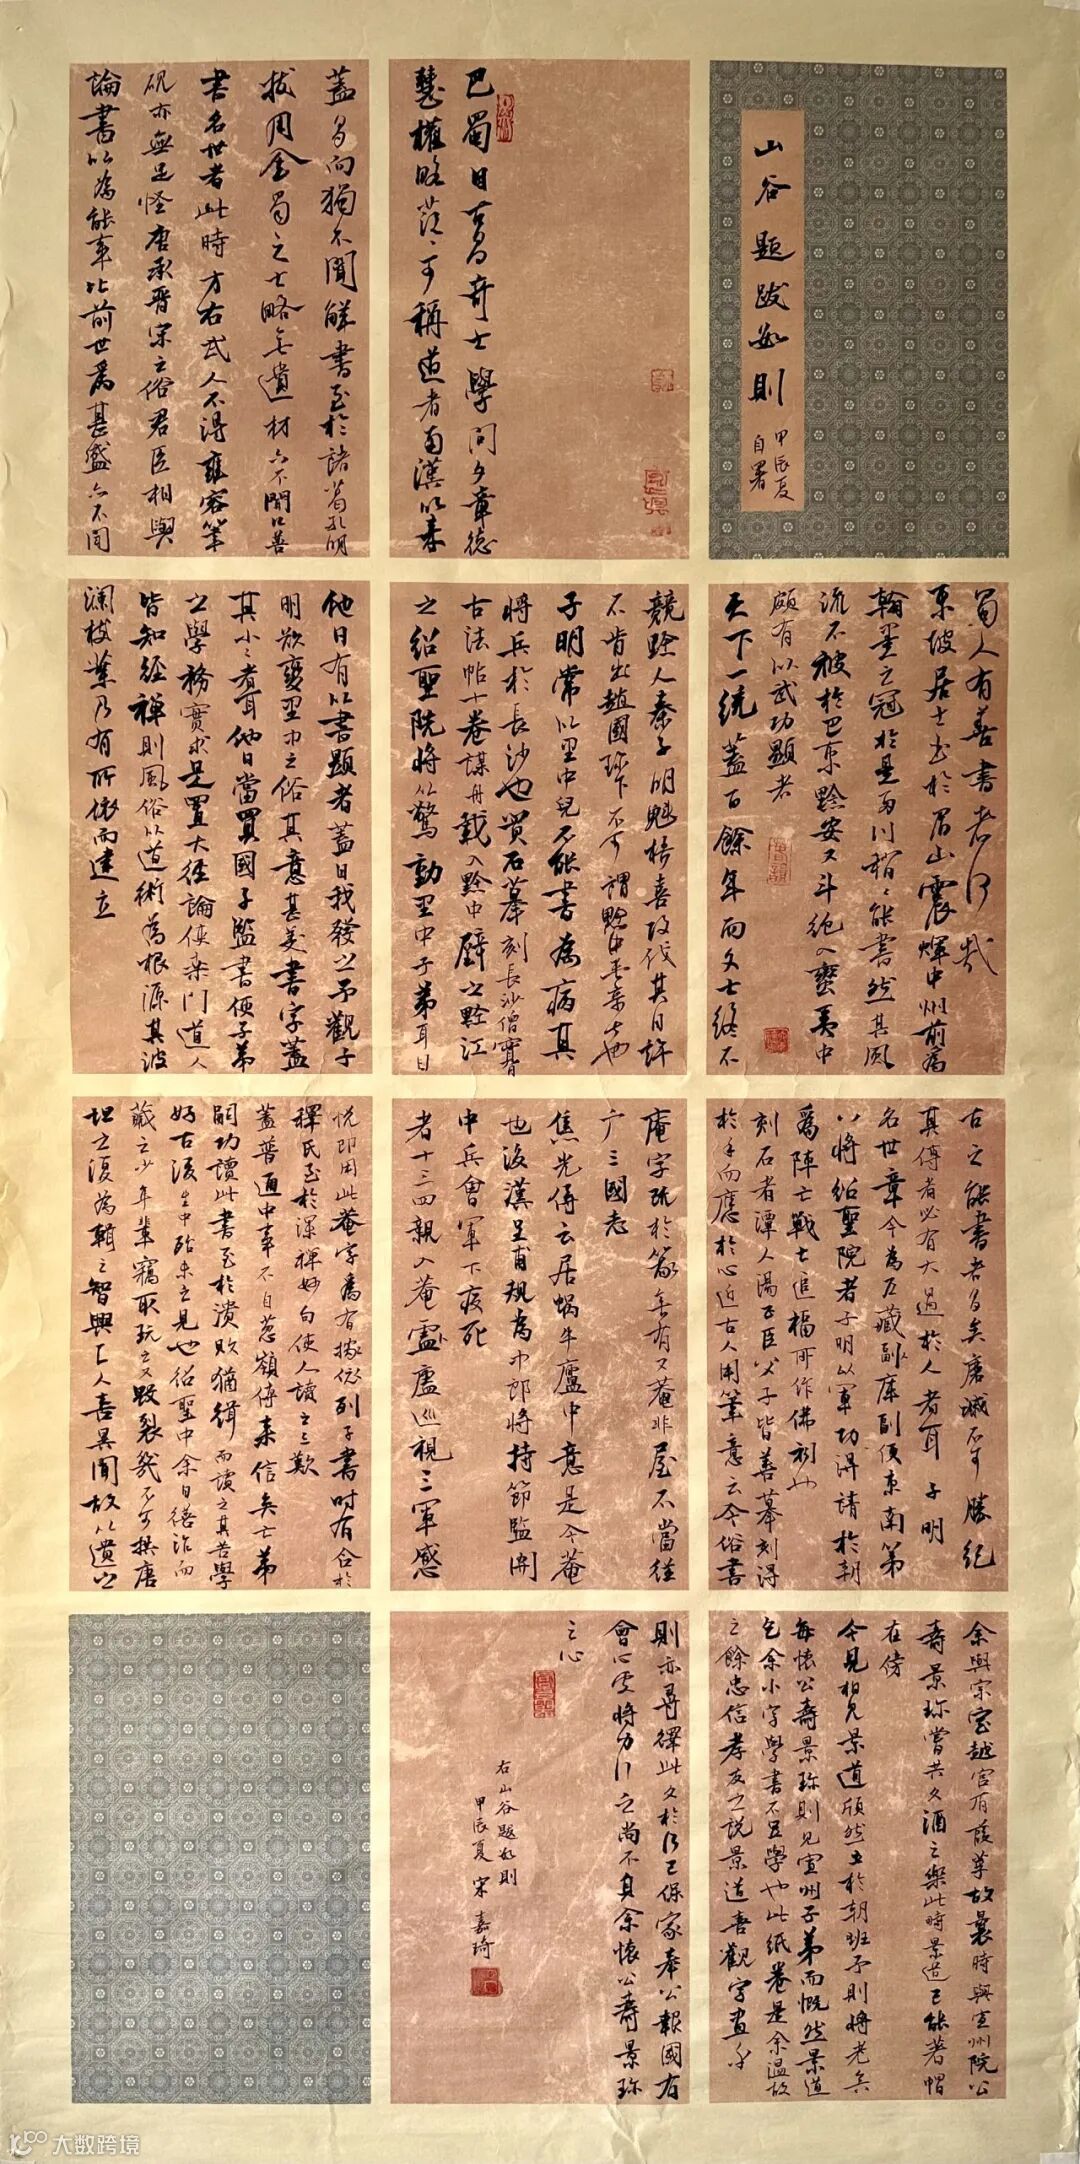 山谷題跋数則
甲辰夏
自署
巴蜀自古多奇士學問文章德
慧權略落可稱道者兩漢以来
蓋多向獨不聞解書至於諸葛孔明
拔用全蜀之士略無遺材亦不聞以善
書名世者此時方右武人不得雍容筆
硯亦無足怪唐承晉宋之俗君臣相與
論書以為能事比前世為甚盛亦不聞
蜀人有善書者何哉
東坡居士出於眉山震輝中州蔚為
翰墨之冠於是兩川稍稍能書然其風
流不被於巴東黔安又斗絕入蠻夷中
頗有以武功顯者
天下一統蓋百餘年而文士終不
競黔人秦子明魁梧喜攻伐其自許
不肯出趙國珍下不可謂黔中無奇士也
子明常以里中兒不能書為病其
將兵於長沙也買石摹刻長沙僧寶月
古法帖十卷謀舟載入黔中壁之黔江
之紹聖院將以驚動里中子弟耳目
他日有以書顯者蓋自我發之予觀子
明欲變里中之俗其意甚美書字蓋
其小小者耳他日當買國子監書使子弟
之學務實求是置大經論使桑門道人
皆知經禪則風俗以道術為根源其波
瀾枝葉乃有所依而建立
古之能書者多矣磨滅不可勝紀
其傳者必有大過於人者耳子明
名世章今為左藏副庫副使東南第
八將紹聖院者子明以軍功得請於朝
為陣亡戰士追福所作佛祠也
刻石者潭人湯正臣父子皆善摹刻得
於手而應於心近古人用筆意云今俗書
庵字既於篆無有又菴非屋不當從
广三國志
焦光傳云居蝸牛廬中意是今菴
也後漢皇甫規為中郎將持節監關
中兵會軍下疫死
者十三四親入菴廬巡視三軍感
悅即用此菴字為有據依列子書時有合於
釋氏至於深禪妙句使人讀之三歎
蓋普通中事不自蔥嶺傳来信矣亡弟
嗣功讀此書至於潰敗猶緝而讀之其苦學
好古後生中殆未之見也紹聖中余自繕治而
藏之少年輩竊取玩之又毀裂幾不可挾唐
坦之復為輯之智興上人喜異聞故以遺之
余與宗室越宮有葭莩故曩時與宣州院公
壽景珍嘗共文酒之樂此時景道已能著帽
在傍
今見相見景道頎然立於朝班予則將老矣
每懷公壽景珍則見宣州子弟而慨然景道
乞余小字學書不足學也此紙卷是余溫故
之餘忠信孝友之說景道喜觀字畫乎
則亦尋繹此文於行己保家奉公報國有
會心處將力行之尚不負余懷公壽景珍
之心
右山谷題数則
甲辰夏 宋嘉琦
大数跨境